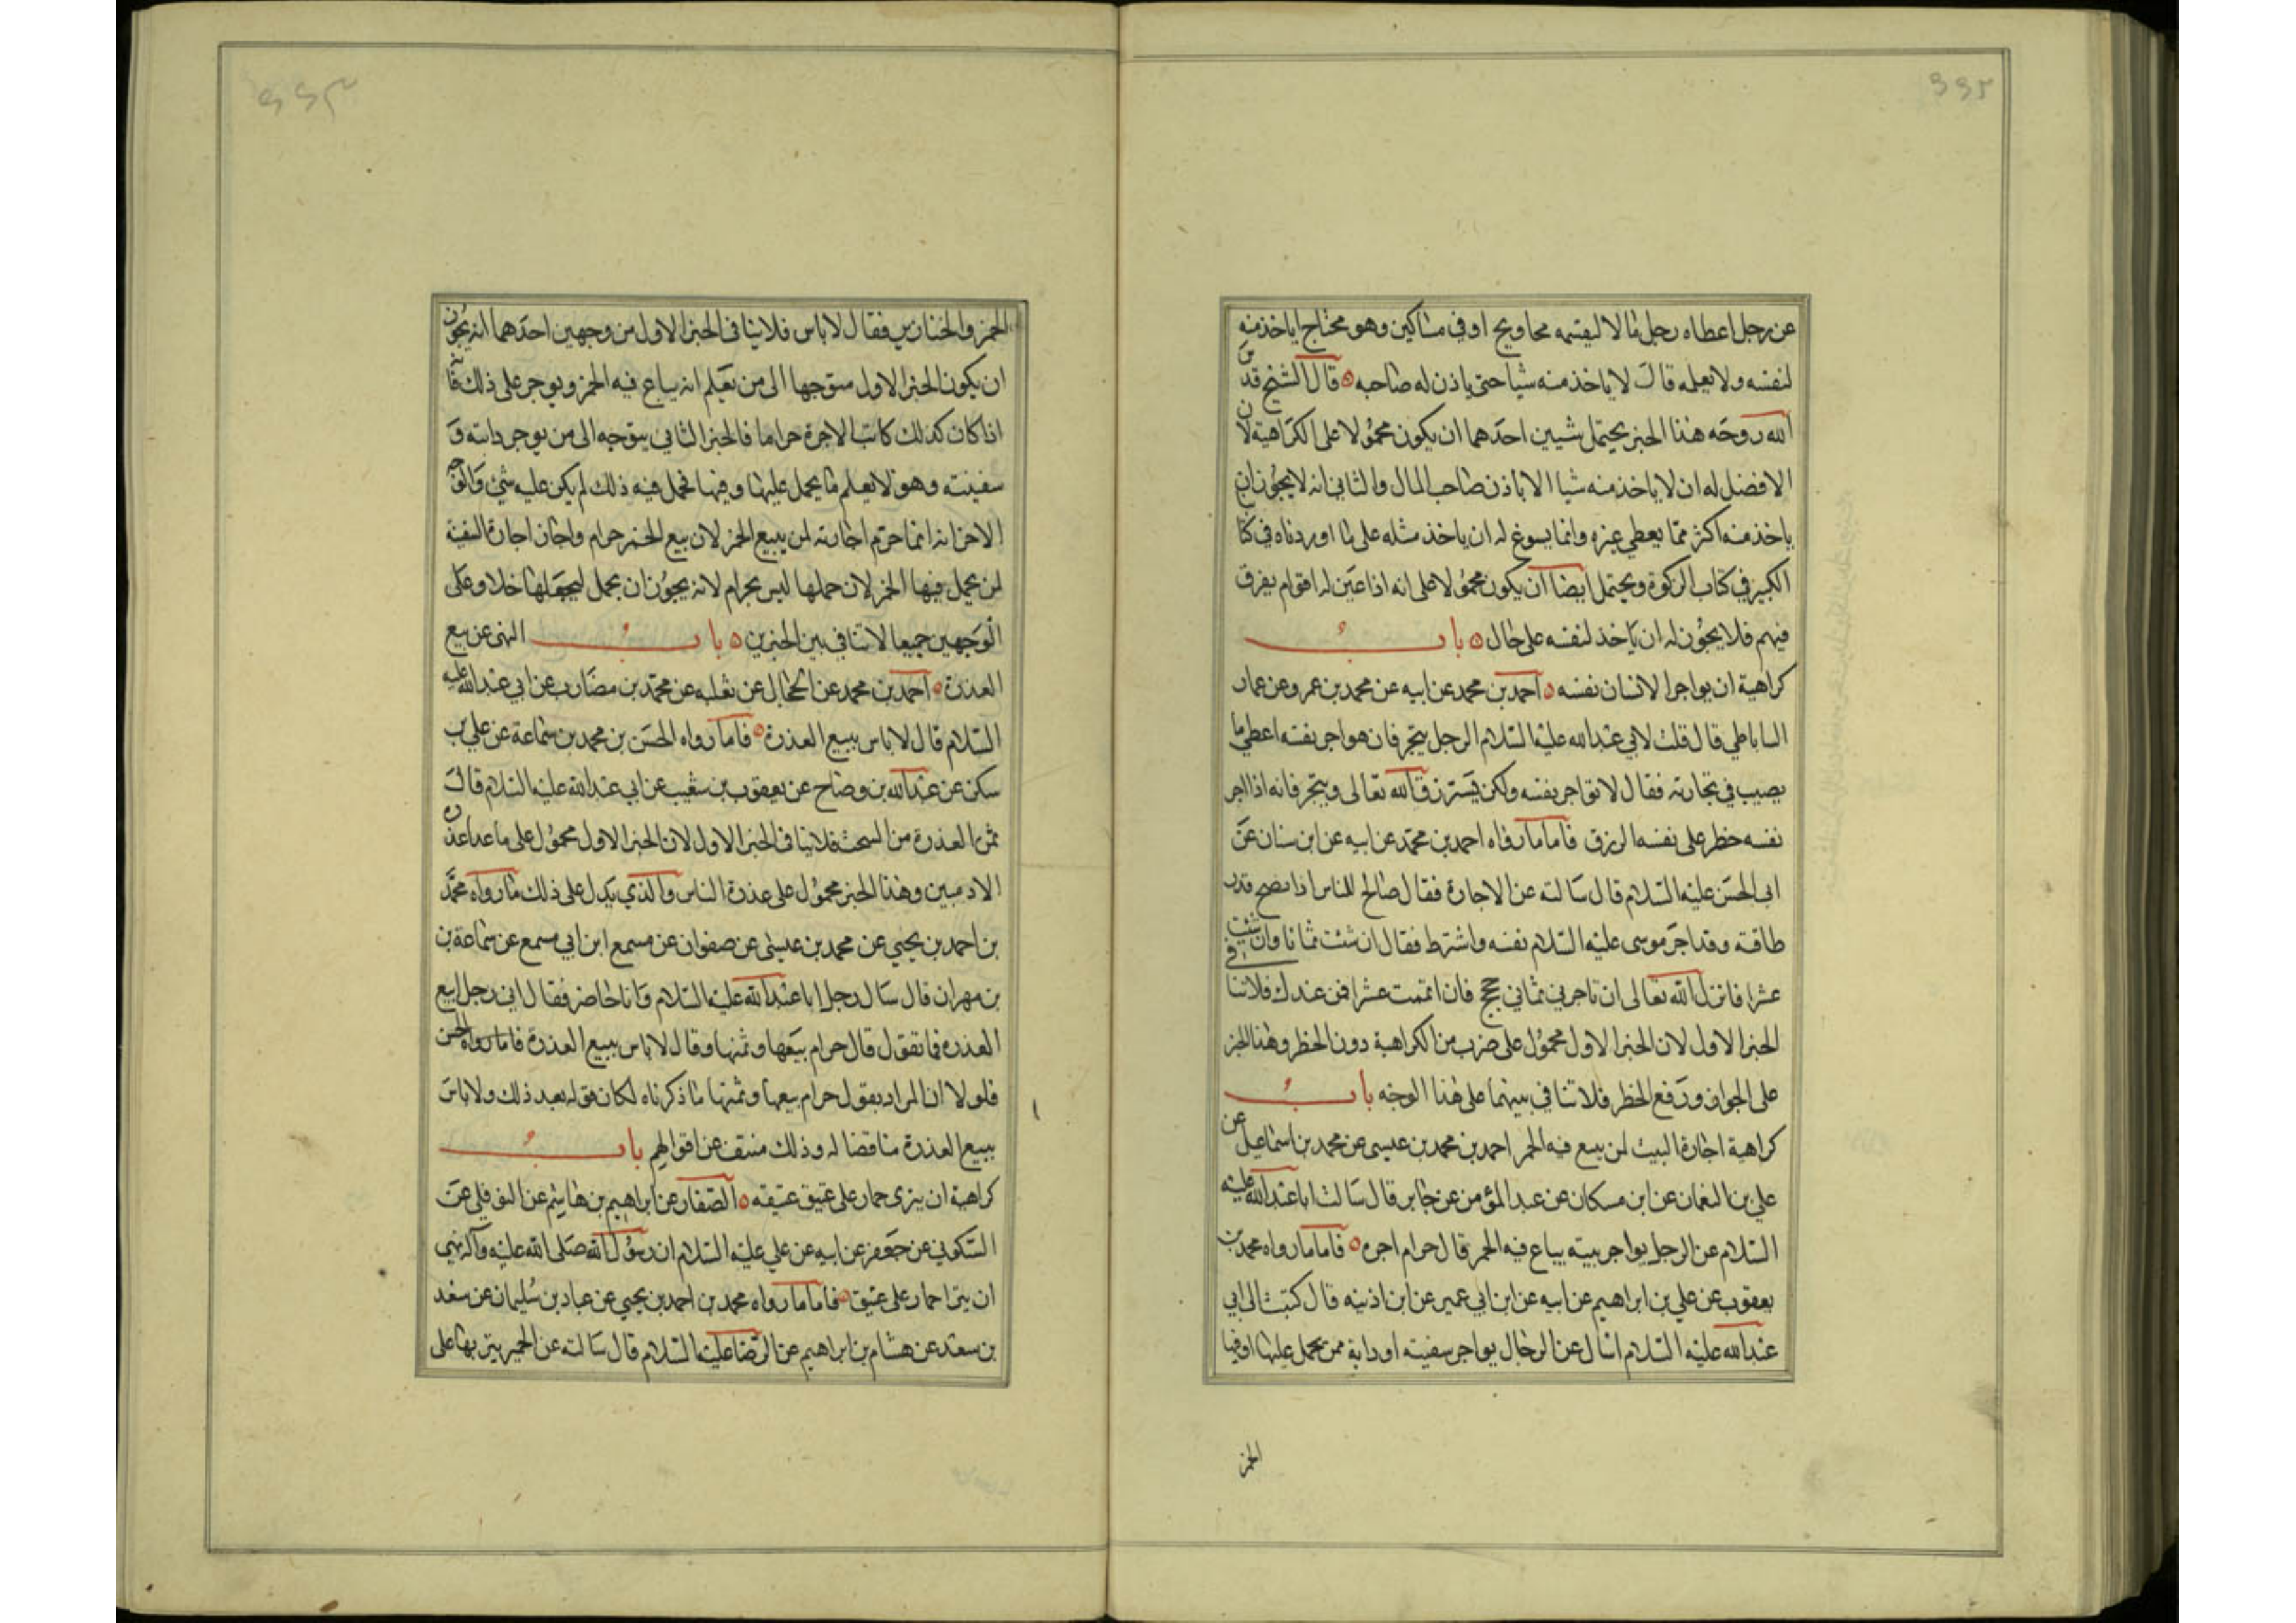 عن رجل اعطاه رجل مالا ليقسمه محاويج او في مساكين وهو محتاج اياخذ منه
لنفسه ولا يعلمه قال لا ياخذ منه شيا حتى ياذن له صاحبه قال الشيخ قدس
الله روحه هذا الخبر يحتمل شيين احدهما ان يكون محمولا على الكراهية لان
الافضل له ان لا ياخذ منه شيا الا باذن صاحب المال والثاني انه لا يجوز ان
ياخذ منه اكثر مما يعطي غيره وانما يسوغ له ان ياخذ مثله على ما اوردناه في كتابنا
الكبير في كتاب الزكوة ويحتمل ايضا ان يكون محمولا على انه اذا عين له اقوام يفرق
فيهم فلا يجوز له ان ياخذ لنفسه على حال باب
كراهية ان يواجر الانسان نفسه احمد بن محمد عن ابيه عن محمد بن عمرو عن عمار
الساباطي قال قلت لابي عبد الله عليه السلام الرجل يتجر فان هو اجر نفسه اعطي ما
يصيب في تجارته فقال لا تواجر نفسه ولكن يسترزق الله تعالى ويتجر فانه اذا اجر
نفسه حظر على نفسه الرزق فاما ما رواه احمد بن محمد عن ابيه عن ابن سنان عن
ابي الحسن عليه السلام قال سالته عن الاجارة فقال صالح للناس اذا نصح قدر
طاقته وقد اجر موسى عليه السلام نفسه واشترط فقال ان شئت ثمانا وان شئت
عشرا فانزل الله تعالى ان تاجرني ثماني حجج فان اتممت عشرا فمن عندك فلا تنافي
الخبر الاول لان الخبر الاول محمول على ضرب من الكراهية دون الحظر وهذا الخبر
على الجواز ورفع الحظر فلا تنافي بينهما على هذا الوجه باب
كراهية اجارة البيت لمن يبيع فيه الخمر احمد بن محمد بن عيسى عن محمد بن اسماعيل عن
علي بن النعمان عن ابن مسكان عن عبد المؤمن عن جابر قال سالت ابا عبد الله عليه
السلام عن الرجل يواجر بيته يباع فيه الخمر قال حرام اجره فاما ما رواه محمد بن
يعقوب عن علي بن ابراهيم عن ابيه عن ابن ابي عمير عن ابن اذينه قال كتبت الى ابي
عبد الله عليه السلام اسال عن الرجال يواجر سفينته او دابة ممن يحمل عليها او فيها
الخمر
الخمر والخنازير فقال لا باس فلا ينافي الخبر الاول من وجهين احدهما انه يجوز
ان يكون الخبر الاول متوجها الى من يعلم انه يباع فيه الخمر ويوجر على ذلك فانه
اذا كان كذلك كانت الاجرة حراما فالخبر الثاني يتوجه الى من يوجر دابته و
سفينته وهو لا يعلم ما يحمل عليها وفيها فحمل فيه ذلك لم يكن عليه شئ والوجه
الاخر انه انما حرم اجارته لمن يبيع الخمر لان بيع الخمر حرام واجاز اجارة السفينة
لمن يحمل فيها الخمر لان حملها ليس بحرام لانه يجوز ان يحمل ليجعلها خلا وعلى
الوجهين جميعا لا تنافي بين الخبرين باب النهى عن بيع
العذرة احمد بن محمد عن الحجال عن ثعلبه عن محمد بن مضارب عن ابي عبد الله عليه
السلام قال لا باس ببيع العذرة فاما رواه الحسن بن محمد بن سماعة عن علي بن
سكن عن عبد الله بن وضاح عن يعقوب بن شعيب عن ابي عبد الله عليه السلام قال
ثمن العذرة من السحت فلا ينافي الخبر الاول لان الخبر الاول محمول على ما عدا عذرة
الادميين وهذا الخبر محمول على عذرة الناس والذي يدل على ذلك ما رواه محمد
بن احمد بن يحيي عن محمد بن عيسى عن صفوان عن مسمع ابن ابي مسمع عن سماعة بن
بن مهران قال سال رجل ابا عبد الله عليه السلام وانا حاضر فقال اني رجل ابيع
العذره فما تقول قال حرام بيعها وثمنها وقال لا باس ببيع العذرة فاما رواه الحسن
فلولا ان المراد بقول حرام بيعها وثمنها ما ذكرناه لكان قوله بعد ذلك ولا باس
ببيع العذرة مناقضا له وذلك منتف عن اقوالهم باب
كراهية ان ينزى حمار على عتيق عتيقه الصفار عن ابراهيم بن هاشم عن النوفلي عن
السكوني عن جعفر عن ابيه عن علي عليه السلام ان رسول الله صلى الله عليه وآله نهى
ان ينزا حمار على عتيق فاما ما رواه محمد بن احمد بن يحيي عن عباد بن سليمان عن سعد
بن سعد عن هشام بن ابراهيم عن الرضا عليه السلام قال سالته عن الحمير ينزيها على